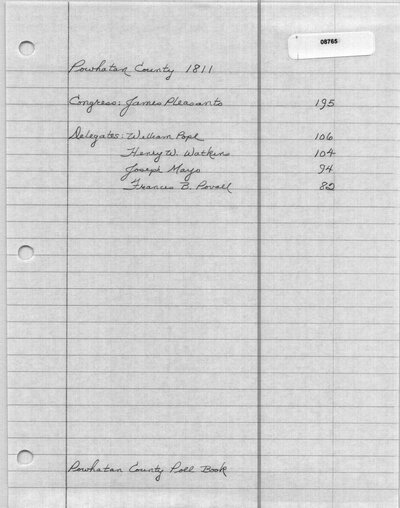 08765
Powhatan County 1811
Congress: James Pleasants 195
Delegates: William Pope 106
Henry W. Watkins 104
Joseph Mayo 94
Francis B. Povall 82
Powhatan County Poll Book